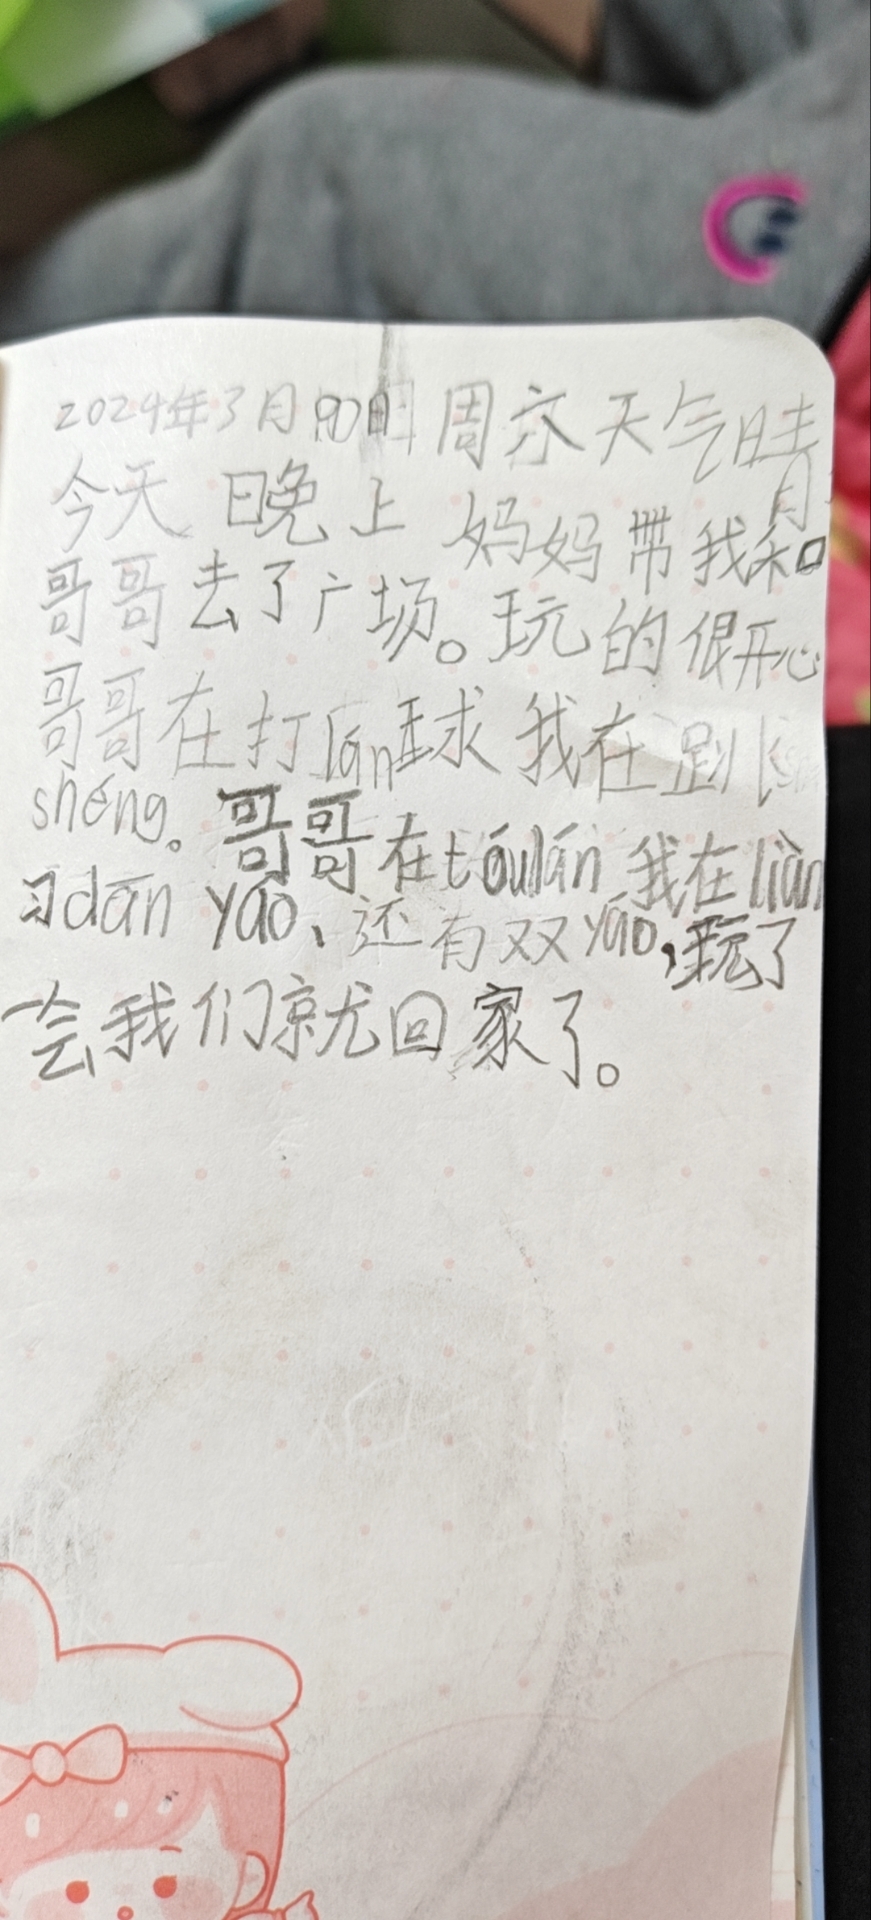 2024年3月 周六天气晴
今天晚上妈妈带我和
哥哥去了广场。玩的很开心
哥哥在打lán球我在跳
shéng。哥哥在tóulán我在liàn
习dān yáo、还有双yáo,玩了
一会我们就回家了。